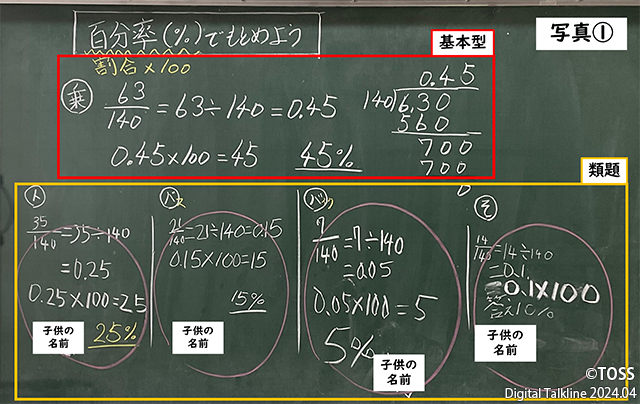 写真①
百分率(%)でもとめよう
割合×100
基本型
乗
63/140=63÷140=0.45
0.45×100=45 45%
0.45
140)6.30
560
700
700
0
類題
人
35/140=35÷140
=0.25
0.25×100=25
25%
子供の
名前
バス
21/140=21÷140=0.15
0.15×100=15
15%
子供の
名前
7/140=7÷140
=0.05
0.05×100=5
5%
子供の
名前
そ
14/140=14÷140
=0.1
0.1×100
答え10%
子供の
名前
©TOSS
Digital Talkline 2024.04